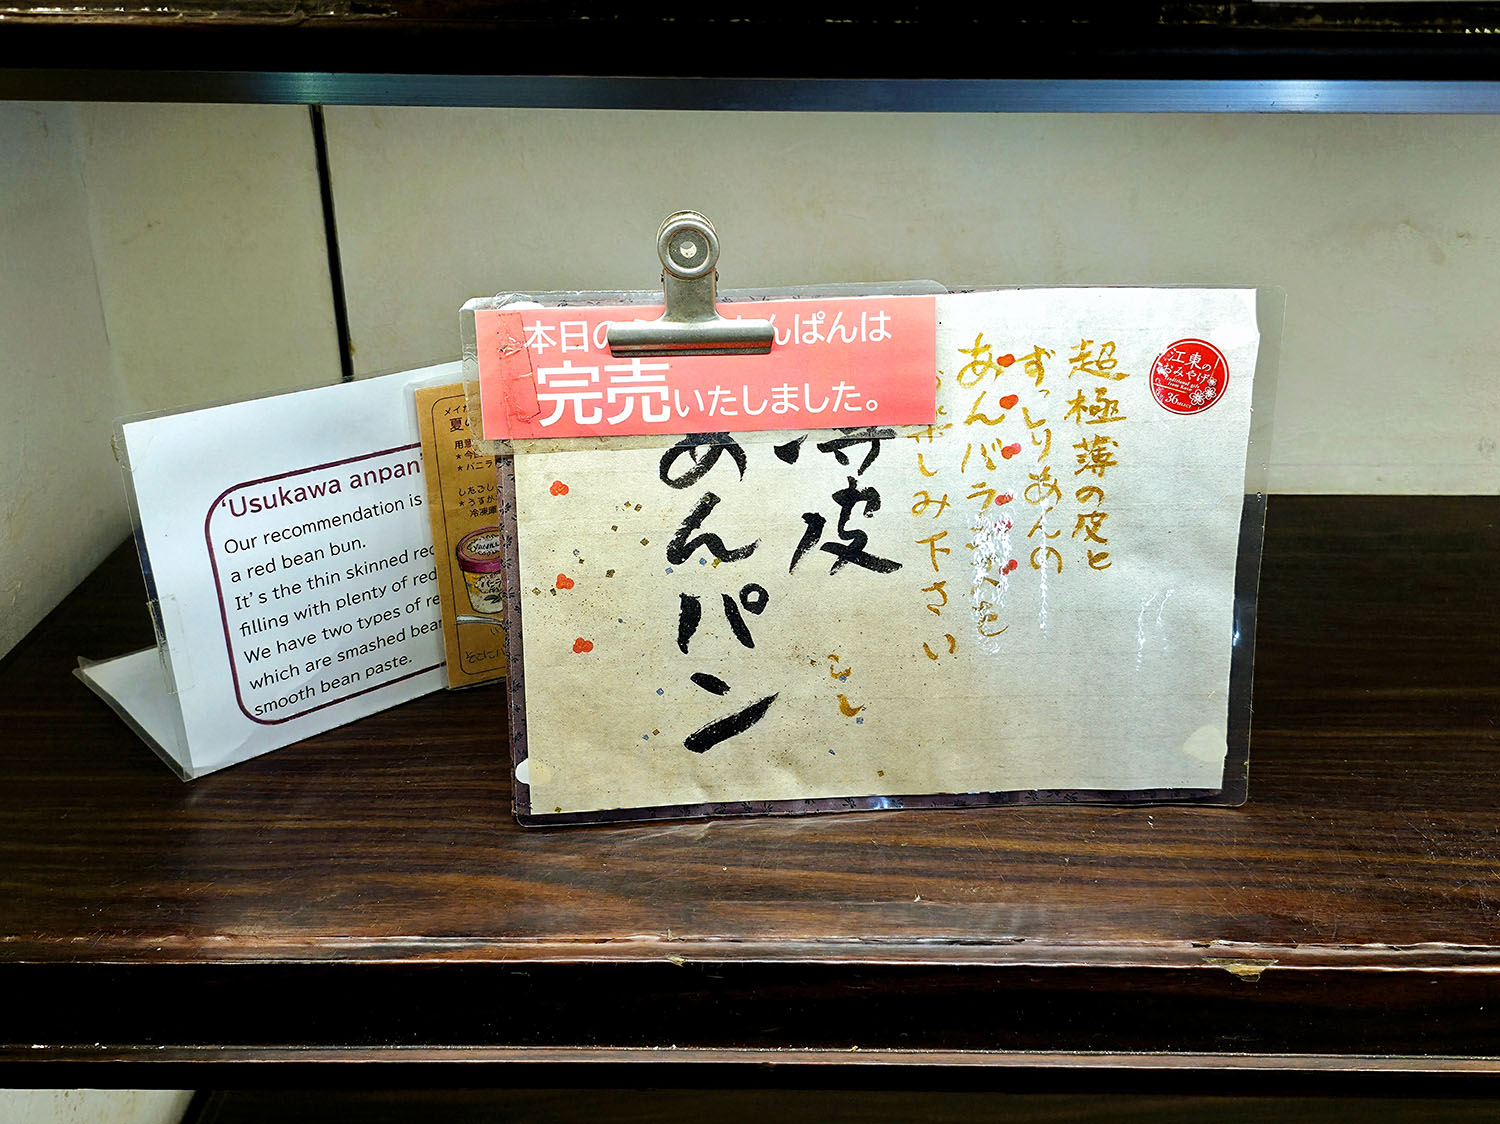 'Usukawa anpan'
Our recommendation is
a red bean bun.
It's the thin skinned red
filling with plenty of red
We have two types of re
which are smashed bean
smooth bean paste.
メイた
夏い
用意
★今日
★バニラ
したごし
★うすか
冷凍庫
VANILL
そこにバ
本日の
んぱんは
完売いたしました。
超極薄の皮と
ずっしりあんの
あんバランスを
楽しみ下さい
薄皮
あんパン
こし
江東の
おみやげ
Traditional gifts
from Koto
36